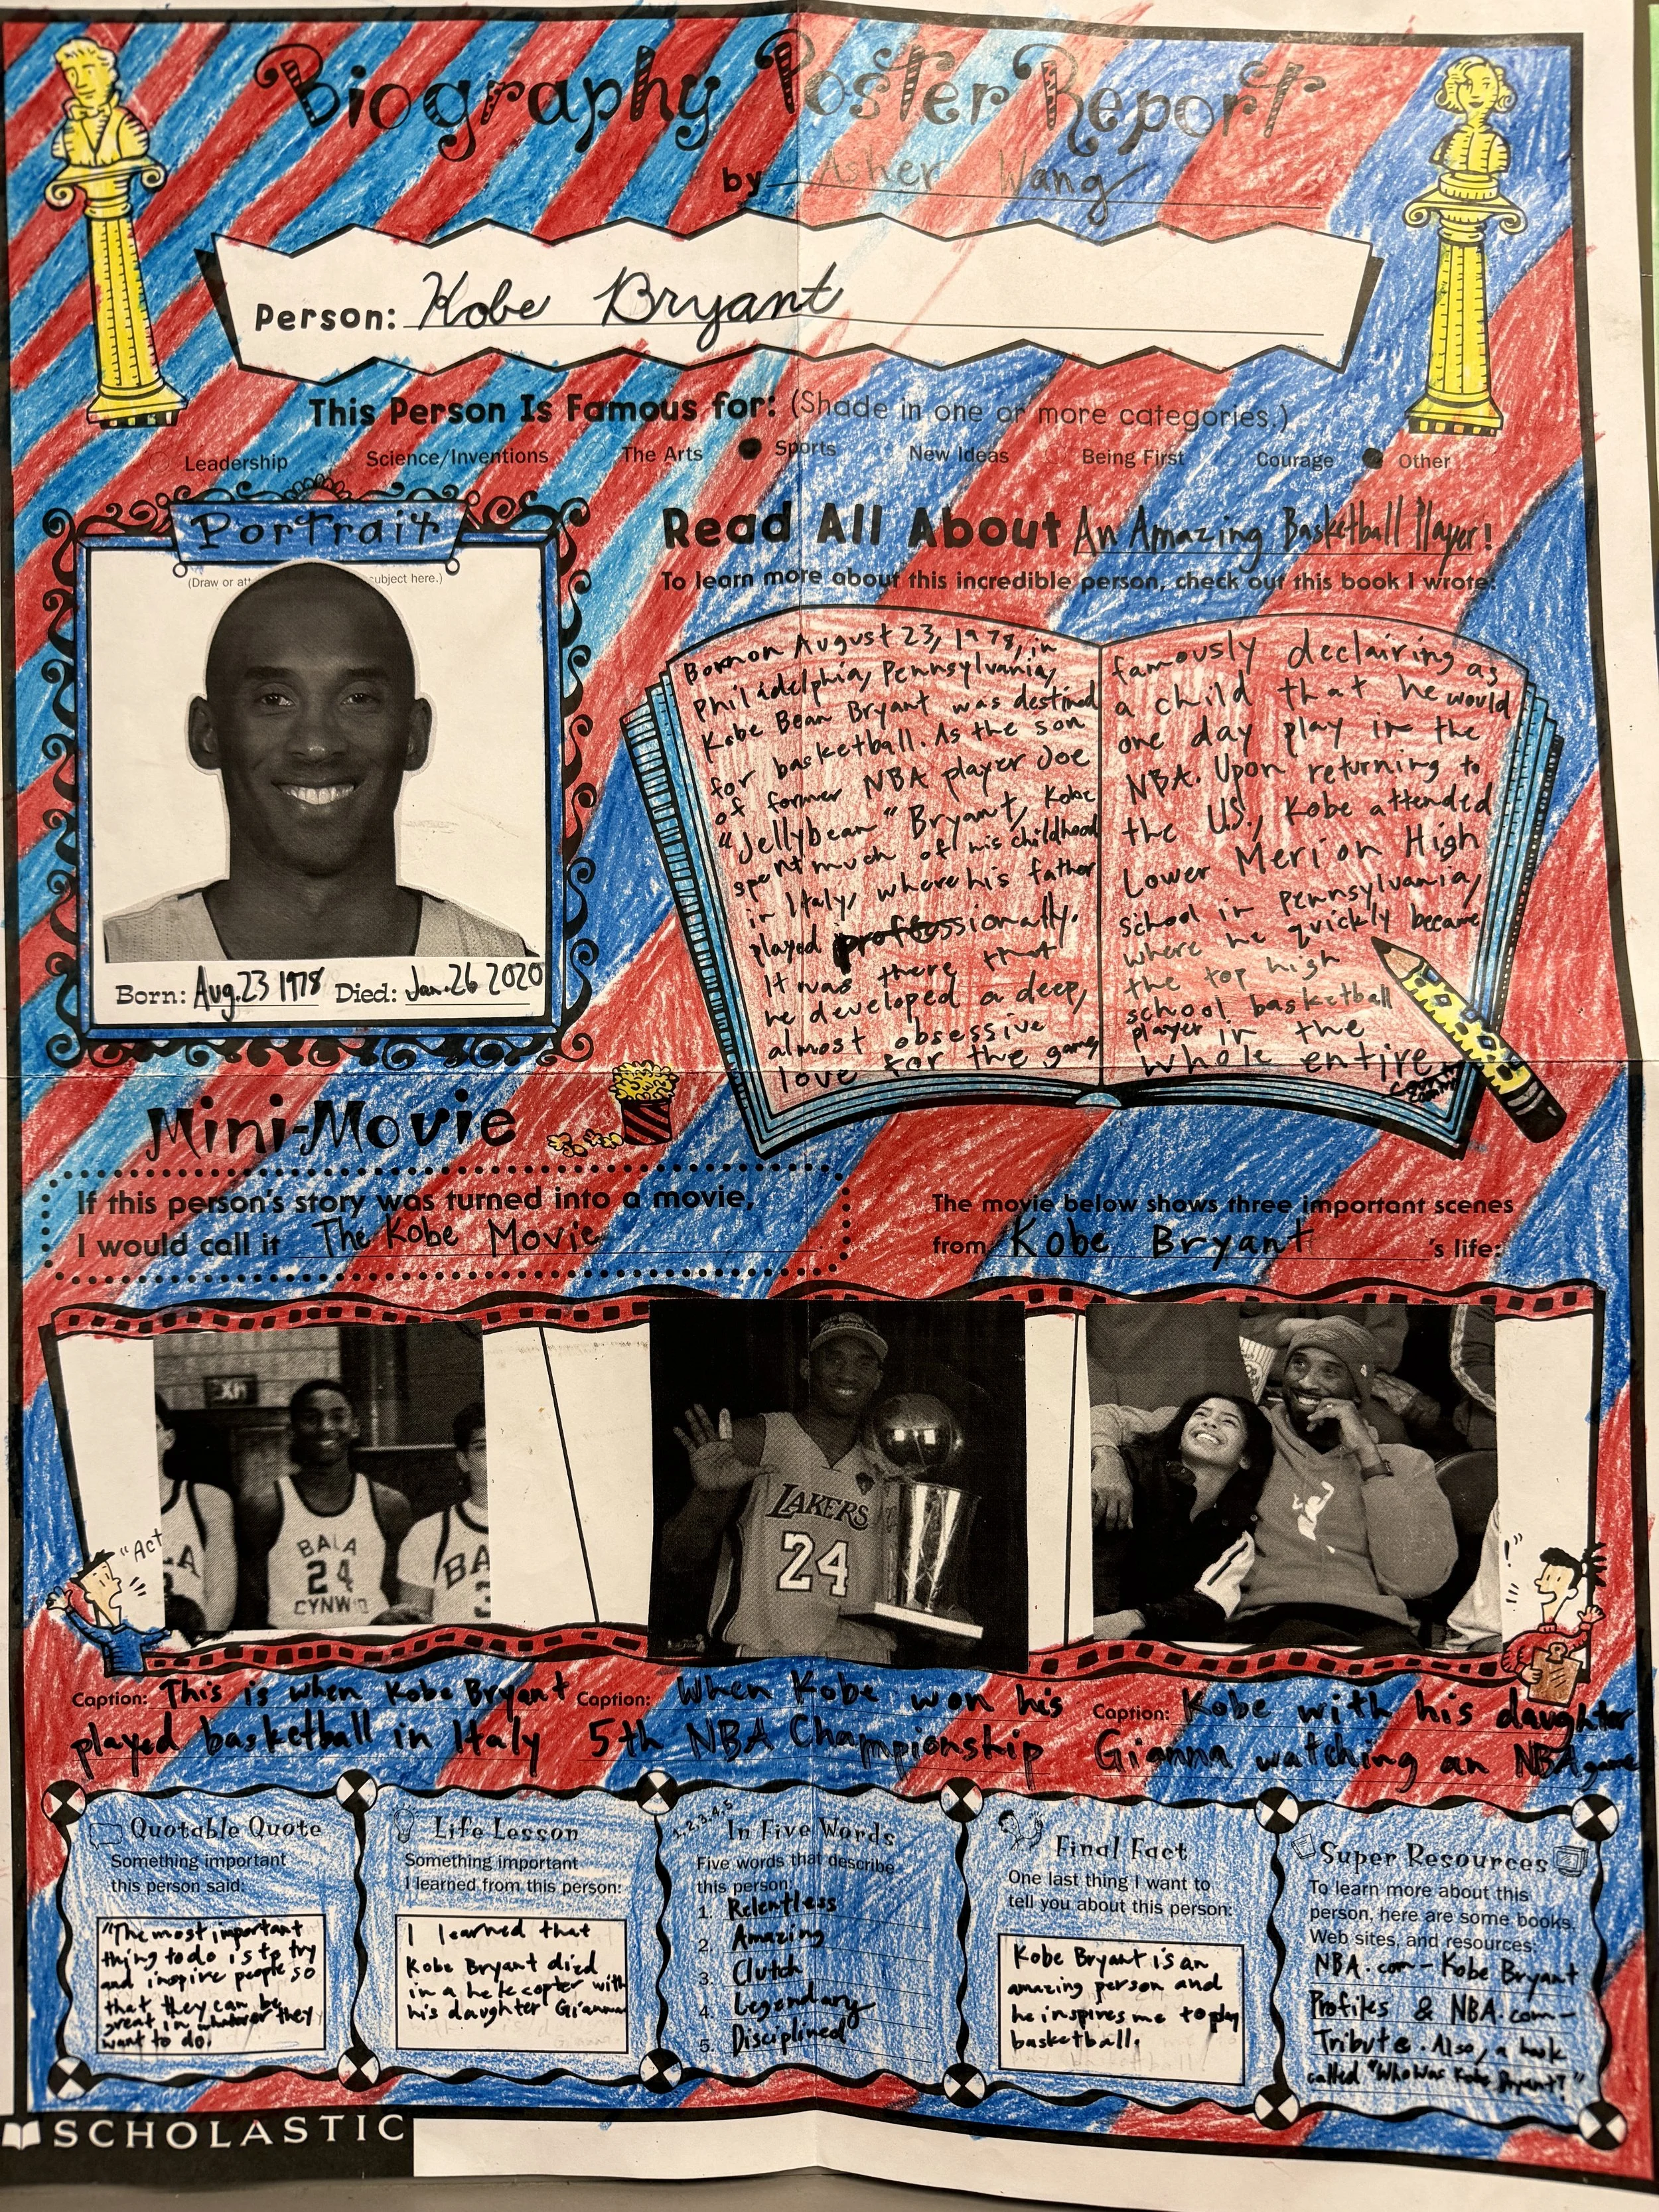 Biography Poster Report
by Asher Wang
Person: Kobe Bryant
This Person Is Famous for: (Shade in one or more categories.)
Leadership Science/Inventions The Arts Sports New Ideas Being First Courage Other
Portrait
(Draw or att subject here.)
Born: Aug. 23 1978 Died: Jan. 26 2020
Read All About An Amazing Basketball Player!
To learn more about this incredible person, check out this book I wrote:
Born on August 23, 1978, in
Philadelphia, Pennsylvania,
Kobe Bean Bryant was destined
for basketball. As the son
of former NBA player Joe
"Jellybean" Bryant, Kobe
spent much of his childhood
in Italy, where his father
played professionally.
It was there that
he developed a deep,
almost obsessive
love for the game
famously declairing as
a child that he would
one day play in the
NBA. Upon returning to
the U.S., Kobe attended
Lower Merion High
School in Pennsylvania,
where he quickly became
the top high
school basketball
player in the
whole entire
Mini-Movie
If this person's story was turned into a movie,
I would call it The Kobe Movie
The movie below shows three important scenes
from Kobe Bryant 's life:
"Act
EXIT
BALA
24
CYNWYD
LA
BA
3
LAKERS
24
Caption: This is when Kobe Bryant
played basketball in Italy
Caption: When Kobe won his
5th NBA Championship
Caption: Kobe with his daughter
Gianna watching an NBA game
Quotable Quote
Something important
this person said:
"The most important
thing to do is to try
and inspire people so
that they can be
great in whatever they
want to do.
Life Lesson
Something important
I learned from this person:
I learned that
Kobe Bryant died
in a helecopter with
his daughter Gianna
1, 2, 3, 4, 5
In Five Words
Five words that describe
this person:
1. Relentless
2. Amazing
3. Clutch
4. Legendary
5. Disciplined
Final Fact
One last thing I want to
tell you about this person:
Kobe Bryant is an
amazing person and
he inspires me to play
basketball.
Super Resources
To learn more about this
person, here are some books,
Web sites, and resources:
NBA.com - Kobe Bryant
Profiles & NBA.com -
Tribute. Also, a book
called "Who Was Kobe Bryant?"
SCHOLASTIC